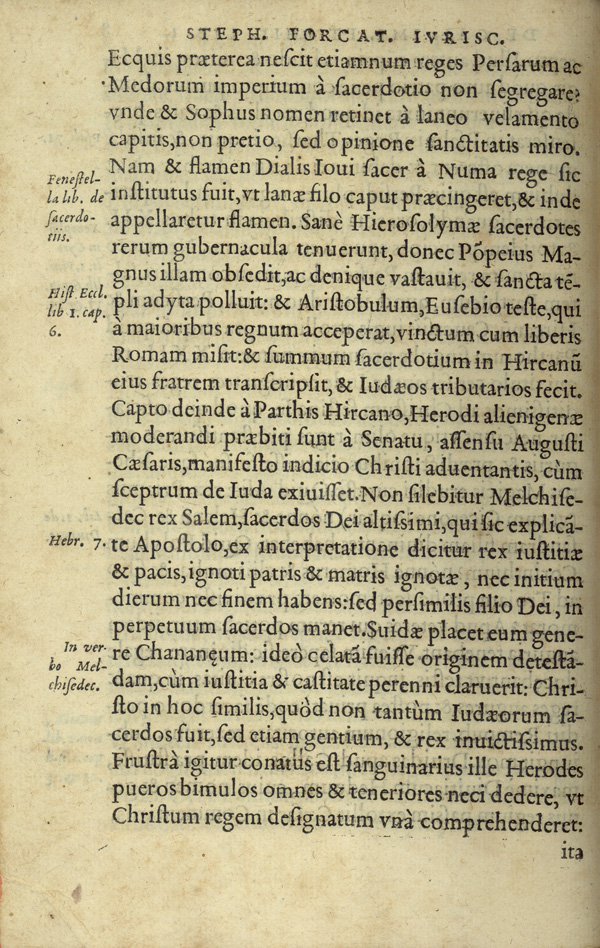 STEPH. FORCAT. IVRISC.
Ecquis præterea neſcit etiamnum reges Perſarum ac
Medorum imperium à ſacerdotio non ſegregare?
vnde & Sophus nomen retinet à laneo velamento
capitis, non pretio, ſed opinione ſanctitatis miro.
Nam & flamen Dialis Ioui ſacer à Numa rege ſic
Feneſtel-
la lib. de
ſacerdo-
tiis.
inſtitutus fuit, vt lanæ filo caput præcingeret, & inde
appellaretur flamen. Sanè Hieroſolymæ ſacerdotes
rerum gubernacula tenuerunt, donec Põpeius Ma-
gnus illam obſedit, ac denique vaſtauit, & ſancta tẽ-
Hiſt Eccl.
lib 1. cap.
6.
pli adyta polluit: & Ariſtobulum, Euſebio teſte, qui
à maioribus regnum acceperat, vinctum cum liberis
Romam miſit: & ſummum ſacerdotium in Hircanũ
eius fratrem tranſcripſit, & Iudæos tributarios fecit.
Capto deinde à Parthis Hircano, Herodi alienigenæ
moderandi præbiti ſunt à Senatu, aſſenſu Auguſti
Cæſaris, manifeſto indicio Chriſti aduentantis, cùm
ſceptrum de Iuda exiuiſſet. Non ſilebitur Melchiſe-
dec rex Salem, ſacerdos Dei altiſsimi, qui ſic explicã-
Hebr. 7.
te Apoſtolo, ex interpretatione dicitur rex iuſtitiæ
& pacis, ignoti patris & matris ignotæ, nec initium
dierum nec finem habens: ſed perſimilis filio Dei, in
perpetuum ſacerdos manet. Suidæ placet eum gene-
In ver-
bo Mel-
chiſedec.
re Chananęum: ideò celatã fuiſſe originem deteſtã-
dam, cùm iuſtitia & caſtitate perenni claruerit: Chri-
ſto in hoc ſimilis, quòd non tantùm Iudæorum ſa-
cerdos fuit, ſed etiam gentium, & rex inuictiſsimus.
Fruſtrà igitur conatus eſt ſanguinarius ille Herodes
pueros bimulos omnes & teneriores neci dedere, vt
Chriſtum regem deſignatum vnà comprehenderet:
ita